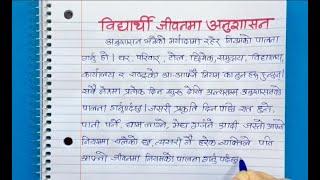 विद्यार्थी जीवनमा अनुशासन
अनुशासन भनेको मर्यादामा रहेर नियमको पालना
गर्नु हो । घर, परिवार, टोल, छिमेक, समुदाय, विद्यालय,
कार्यालय र राष्ट्रको आ-आफ्नै नियम कानुन हुन्छन्।
सबैले जीवनमा प्रत्येक दिन शुरु देखि अन्त्यसम्म अनुशासनको
पालना गर्नुपर्दछ । जसरी प्रकृति दिन पछि रात हुने,
पानी पर्ने, घाम लाग्ने, मेघ गर्जने आदी जस्तो आफ्नै
नियममा चलेको छ, यसरी नै हरेक व्यक्तिले पनि
आफ्नो जीवनमा नियमको पालना गर्नु पर्दछ